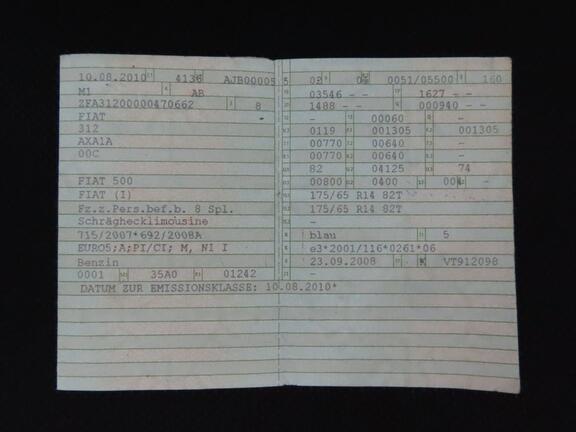 10.08.2010 4136 AJB00005 5
M1 AB
ZFA31200000470662 8
FIAT
312
AXA1A
00C
FIAT 500
FIAT (I)
Fz.z.Pers.bef.b. 8 Spl.
Schräghecklimousine
715/2007*692/2008A
EURO5;A;PI/CI; M, N1 I
Benzin
0001 35A0 01242
DATUM ZUR EMISSIONSKLASSE: 10.08.2010*
02 0051/05500 160
03546 - - 1627 - -
1488 - - 000940 - -
- 00060 -
0119 001305 001305
00770 00640 -
00770 00640 -
82 04125 74
00800 0400 -
175/65 R14 82T
175/65 R14 82T
-
blau 5
e3*2001/116*0261*06
23.09.2008 K VT912098
-